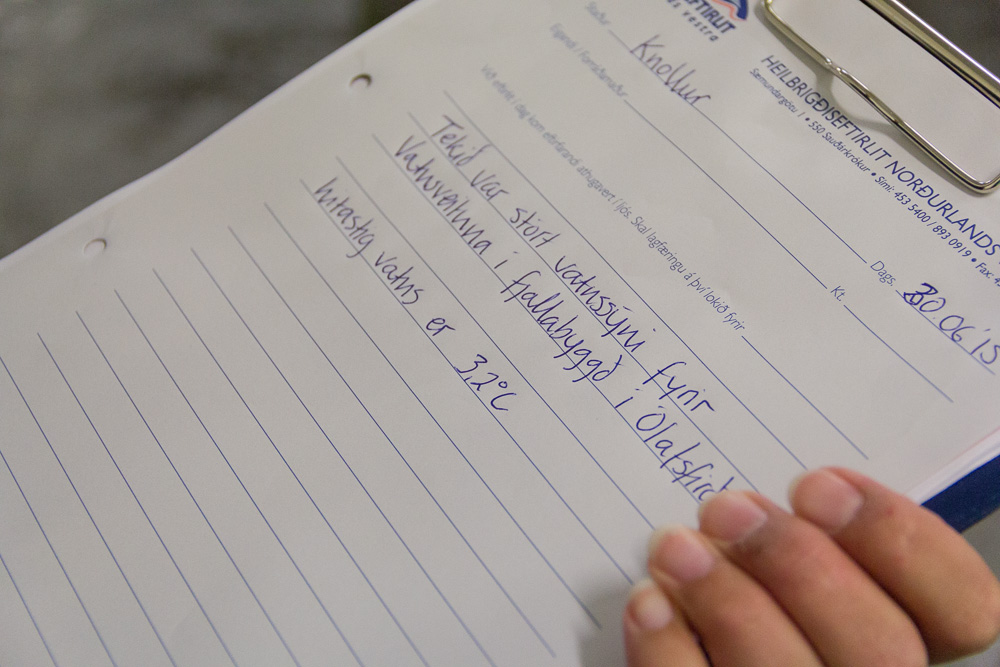 EFTIRLIT
vestra
HEILBRIGÐISEFTIRLIT NORÐURLANDS
Sæmundargötu 1 • 550 Sauðárkrókur • Sími: 453 5400 / 893 0919 • Fax:
Staður Knollur Dags. 30.06'15
Eigandi / Forráðamaður Kt.
Við eftirlit í dag kom eftirfarandi athugavert í ljós. Skal lagfæringu á því lokið fyrir
Tekið var stórt vatnssýni fyrir
Vatnsveituna í fjallabyggð í Ólafsfirð
hitastig vatns er 3,2°C